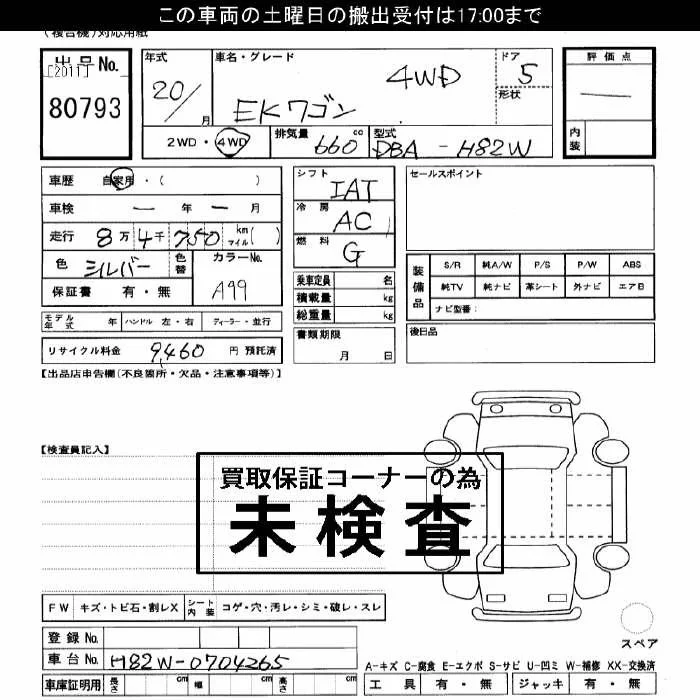 この車両の土曜日の搬出受付は17:00まで
(複合機)対応用紙
出品 No.
[2011]
80793
年式
20/
月
車名・グレード
4WD
EKワゴン
ドア
5
形状
評価点
内装
2WD・4WD
排気量
660 cc
型式
DBA - H82W
車歴 自家用・( )
車検 ー 年 ー 月
走行 8万 4千 750 km マイル( )
色 シルバー 色替
カラーNo.
A99
保証書 有・無
モデル年式 年 ハンドル 左・右 ディーラー・並行
リサイクル料金 9,460 円 預託済
シフト
IAT
冷房
AC
燃料
G
乗車定員 名
積載量 kg
総重量 kg
書類期限
月 日
セールスポイント
装備品
S/R 純A/W P/S P/W ABS
純TV 純ナビ 革シート 外ナビ エアB
ナビ型番:
後日品
【出品店申告欄(不良箇所・欠品・注意事項等)】
【検査員記入】
買取保証コーナーの為
未検査
FW キズ・トビ石・割レX シート内装 コゲ・穴・汚レ・シミ・破レ・スレ
スペア
登録 No.
車台 No. H82W-0704265
車庫証明用 長さ cm 幅 cm 高さ cm
A-キズ C-腐食 E-エクボ S-サビ U-凹ミ W-補修 XX-交換済
工具 有・無 ジャッキ 有・無